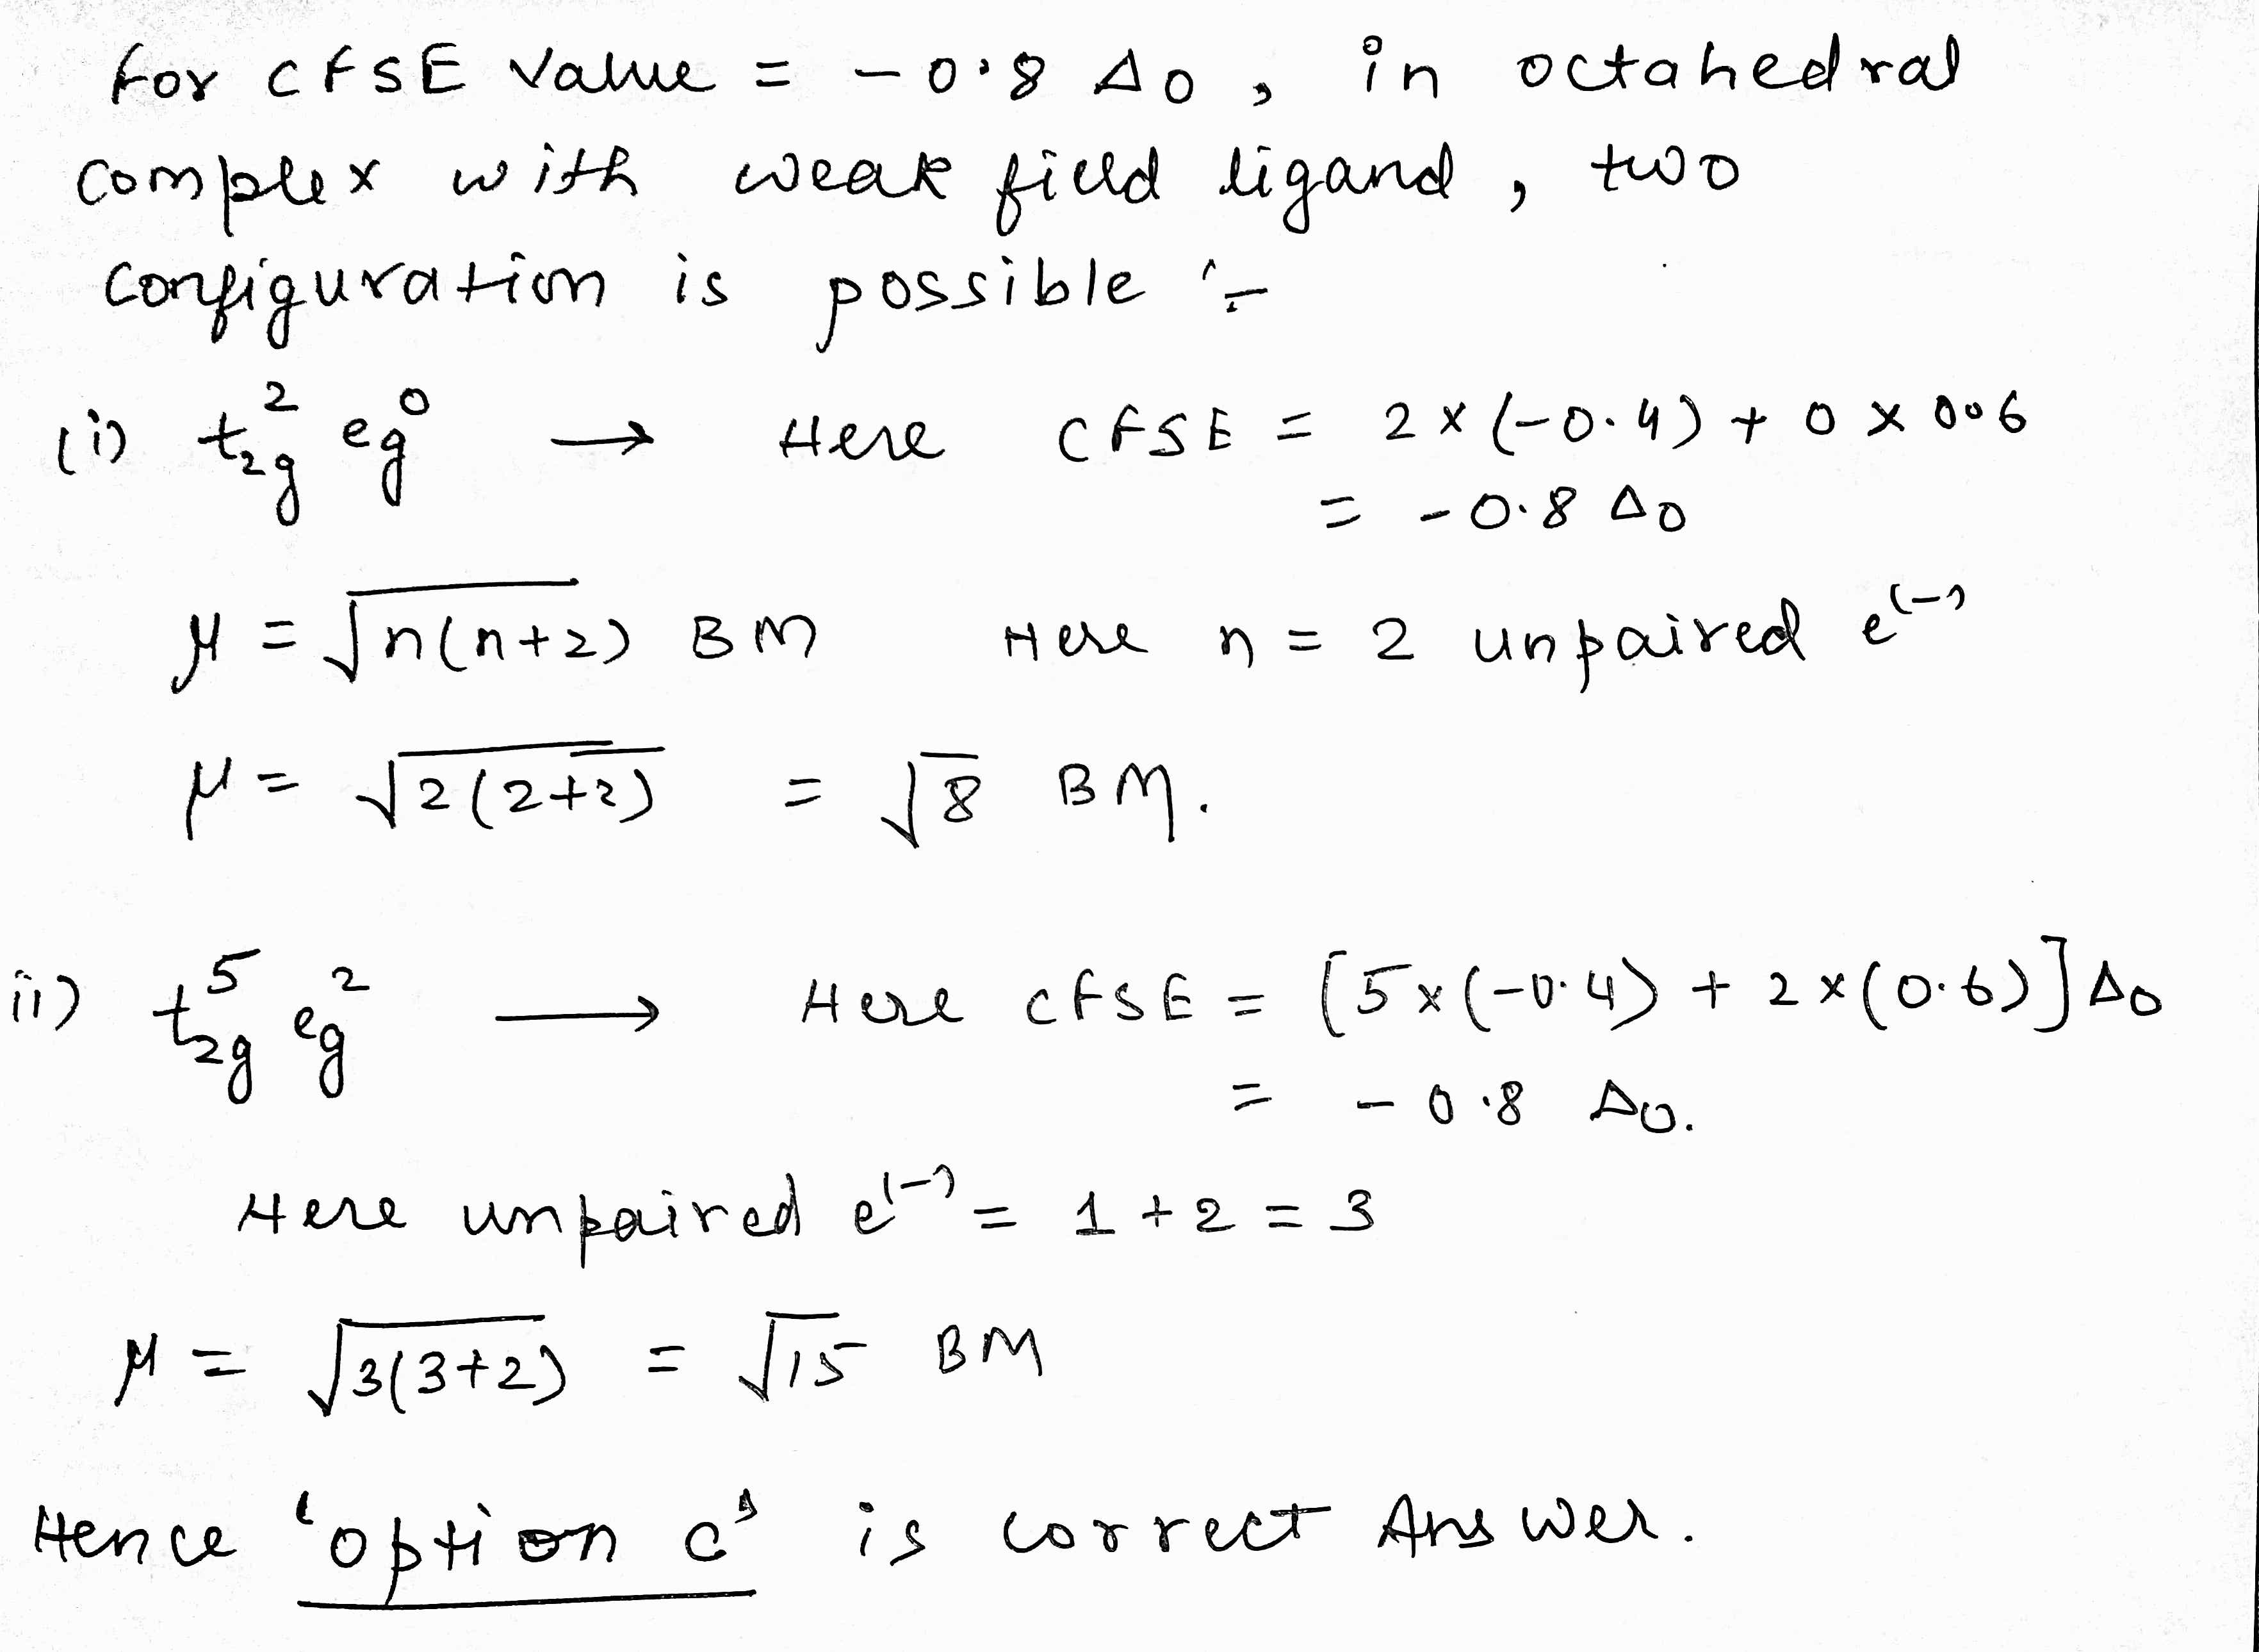 for CFSE Value = -0.8 Δo, in octahedral
complex with weak field ligand, two
configuration is possible :-
(i) t₂g² eg⁰ → Here CFSE = 2×(-0.4) + 0 × 0.6
= -0.8 Δo
μ = √n(n+2) BM Here n = 2 unpaired e⁽⁻⁾
μ = √2(2+2) = √8 BM.
ii) t₂g⁵ eg² → Here CFSE = [5×(-0.4) + 2×(0.6)] Δo
= -0.8 Δo.
Here unpaired e⁽⁻⁾ = 1+2 = 3
μ = √3(3+2) = √15 BM
Hence 'option c' is correct Answer.